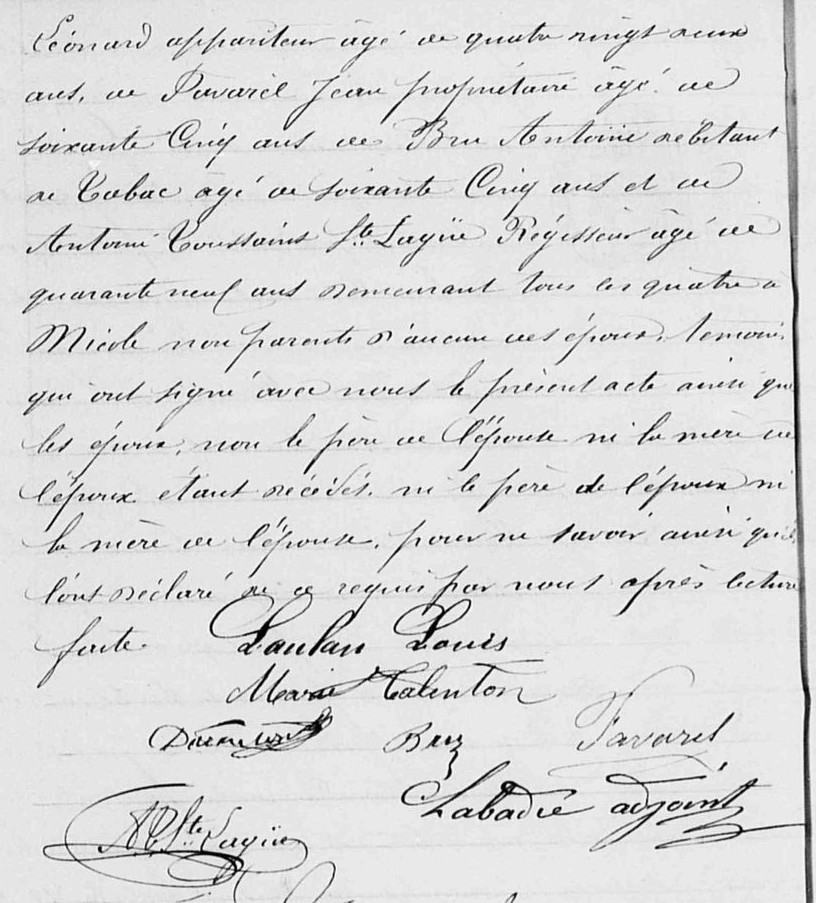 Léonard appariteur âgé de quatre vingt deux
ans, de Favarel Jean propriétaire âgé de
soixante Cinq ans de Bru Antoine débitant
de Tabac âgé de soixante Cinq ans et de
Antoine Toussaint Ste Lagüe Régisseur âgé de
quarante neuf ans demeurant tous les quatre à
non parents d'aucun des époux, temoins
qui ont signé avec nous le présent acte ainsi que
les époux, non le père de l'épouse ni la mère de
l'époux étant décédés, ni le père de l'époux ni
la mère de l'épouse, pour ne savoir ainsi qu'ils
l'ont déclaré de ce requis par nous après lecture
faite.
Laulan Louis
Marie Talenton
Bru Favarel
Labadie adjoint
Ste Lagüe